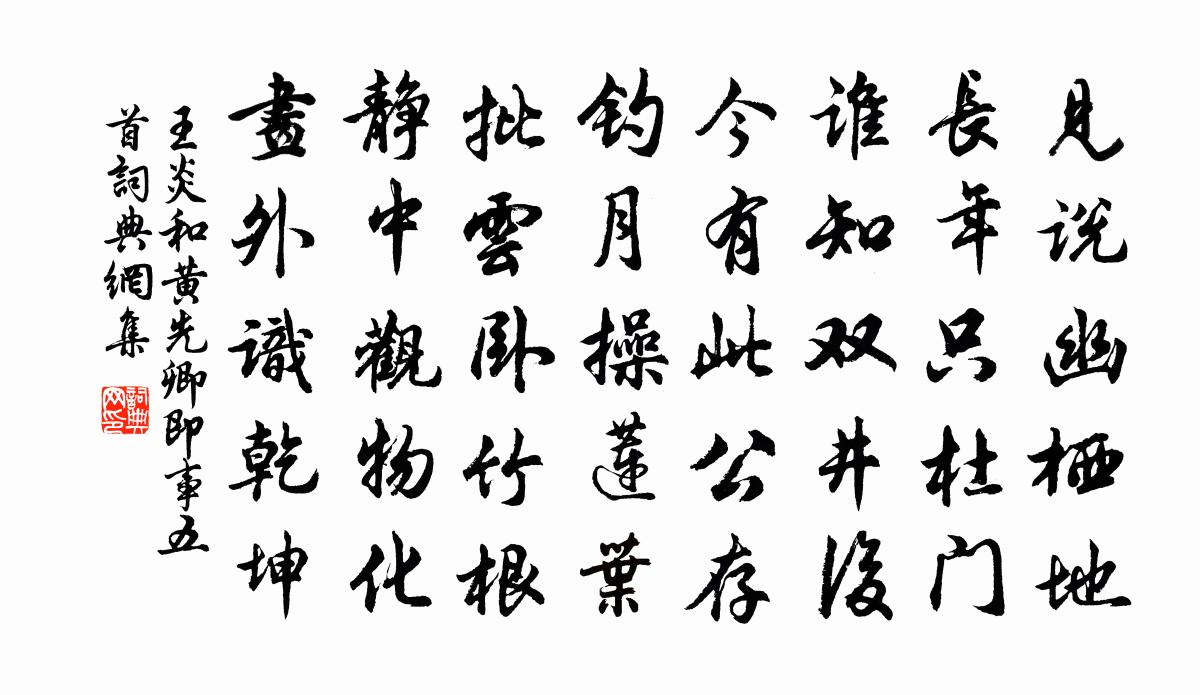 見说幽栖地
長年只杜门
谁知双井後
今有此公存
钓月操蓮葉
批雲卧竹根
静中觀物化
畫外識乾坤
王炎和黄先卿即事五
首詞典網集
詞典
网印